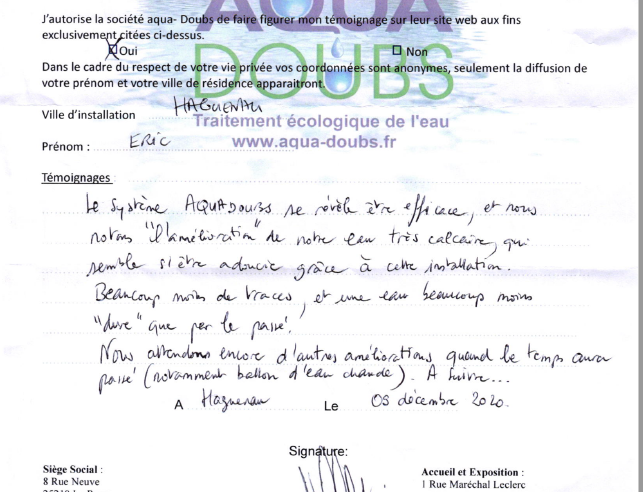 AQUA
J'autorise la société aqua- Doubs de faire figurer mon témoignage sur leur site web aux fins
exclusivement citées ci-dessus.
Oui
Non
DOUBS
Dans le cadre du respect de votre vie privée vos coordonnées sont anonymes, seulement la diffusion de
votre prénom et votre ville de résidence apparaitront.
Ville d'installation HAGUENAU
Traitement écologique de l'eau
Prénom : ERIC
www.aqua-doubs.fr
Témoignages :
Le système AQUADOUBS se révèle être efficace, et nous
notons "l'amélioration" de notre eau très calcaire, qui
semble s'être adoucie grâce à cette installation.
Beaucoup moins de traces, et une eau beaucoup moins
"dure" que par le passé.
Nous attendons encore d'autres améliorations quand le temps aura
passé (notamment ballon d'eau chaude). A suivre...
A Haguenau Le 05 décembre 2020.
Signature:
Siège Social :
Accueil et Exposition :
8 Rue Neuve
1 Rue Maréchal Leclerc